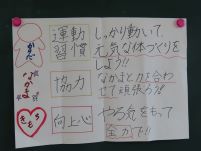 からだ
運動
習慣
しっかり動いて、
元気な体づくりを
しよう!!
なかま
協力
なかまと力を合わ
せて頑張ろう!!
きもち
向上心
やる気をもって
全力で!!